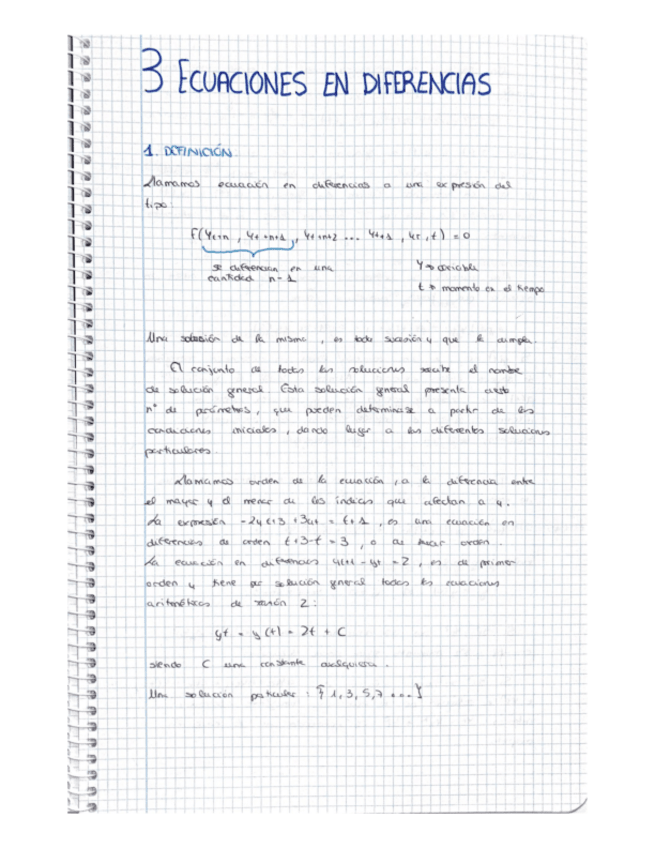 3 ECUACIONES EN DIFERENCIAS
1. DEFINICIÓN
Llamamos ecuación en diferencias a una expresión del
tipo:
F(yt+n, yt+n+1, yt+n+2 ... yt+1, yt, t) = 0
se diferencian en una
cantidad n-1
Y → variable
t → momento en el tiempo
Una solución de la misma, es toda sucesión y que la cumpla.
El conjunto de todas las soluciones recibe el nombre
de solución general. Esta solución general presenta cierto
nº de parámetros, que pueden determinarse a partir de las
condiciones iniciales, dando lugar a las diferentes soluciones
particulares.
Llamamos orden de la ecuación, a la diferencia entre
el mayor y el menor de los índices que afectan a y.
La expresión -2yt+3 + 3yt = t+1, es una ecuación en
diferencias de orden t+3-t = 3, o de tercer orden.
La ecuación en diferencias yt+1 - yt = 2, es de primer
orden y tiene por solución general todas las
aritméticas de razón 2:
yt = y(t) = 2t + C
siendo C una constante cualquiera.
Una solución particular: {1, 3, 5, 7 ...}